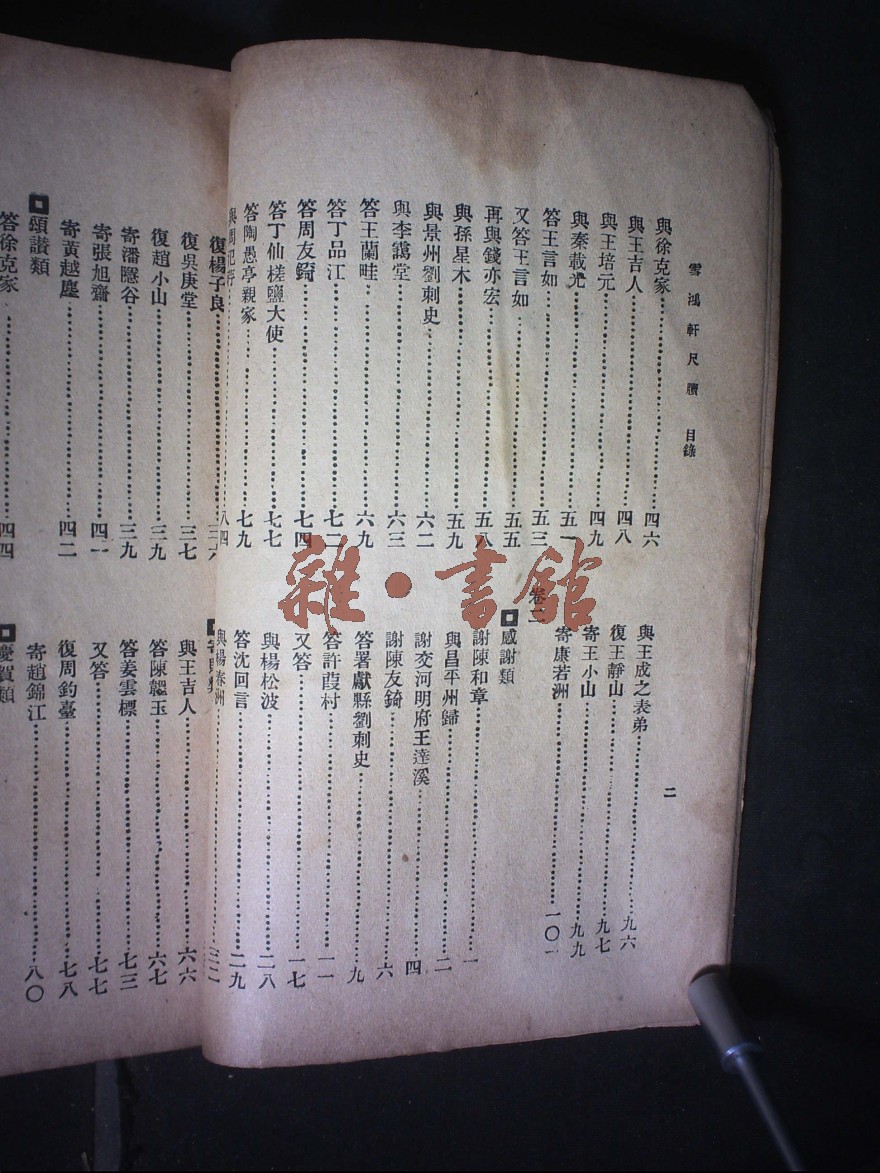 雪鴻軒尺牘 目錄
二
與徐克家 四六
與王吉人 四八
與王培元 四九
與秦載光 五一
答王言如 五三
又答王言如 五五
再與錢亦宏 五八
與孫星木 五九
與景州劉刺史 六二
與李靄堂 六三
答王蘭畦 六九
答丁品江 七二
答周友錡 七四
答丁仙槎鹽大使 七七
答陶愚亭親家 七九
八四
與王成之表弟 九六
復王靜山 九七
寄王小山 九九
寄康若洲 一〇一
卷二
感謝類
謝陳和章 一
與昌平州歸 二
謝交河明府王達溪 四
謝陳友錡 六
答署獻縣劉刺史 九
答許葭村 一一
又答 一七
與楊松波 二八
答沈回言 二九
與楊秦洲 三二
復楊子良 三六
復吳庚堂 三七
復趙小山 三九
寄潘隱谷 三九
寄張旭齋 四一
寄黃越塵 四二
頌讚類
答徐克家 四四
與王吉人 六六
答陳韞玉 六七
答姜雲標 七三
又答 七七
復周釣臺 七八
慶賀類
寄趙錦江 八〇
雜·書館